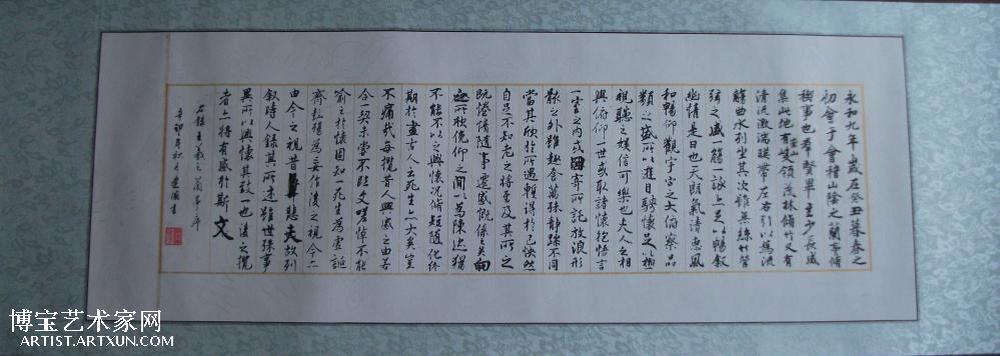 永和九年歲在癸丑暮春之
初會于會稽山陰之蘭亭脩
稧事也群賢畢至少長咸
集此地有崇山峻領茂林脩竹又有
清流激湍暎帶左右引以爲流
觴曲水列坐其次雖無絲竹管
弦之盛一觴一詠亦足以暢敘
幽情是日也天朗氣清惠風
和暢仰觀宇宙之大俯察品
類之盛所以遊目騁懷足以極
視聽之娛信可樂也夫人之相
與俯仰一世或取諸懷抱悟言
一室之內或因寄所託放浪形
骸之外雖趣舍萬殊靜躁不同
當其欣於所遇蹔得於己怏然
自足不知老之將至及其所之
既惓情隨事遷感慨係之矣向
之所欣俛仰之間以爲陳迹猶
不能不以之興懷況脩短隨化終
期於盡古人云死生亦大矣豈
不痛哉每攬昔人興感之由若
合一契未嘗不臨文嗟悼不能
喻之於懷固知一死生爲虛誕
齊彭殤爲妄作後之視今亦
由今之視昔悲夫故列
敘時人錄其所述雖世殊事
異所以興懷其致一也後之攬
者亦將有感於斯文
右錄王羲之蘭亭序
辛卯年秋月
博宝艺术家网
ARTIST.ARTXUN.COM